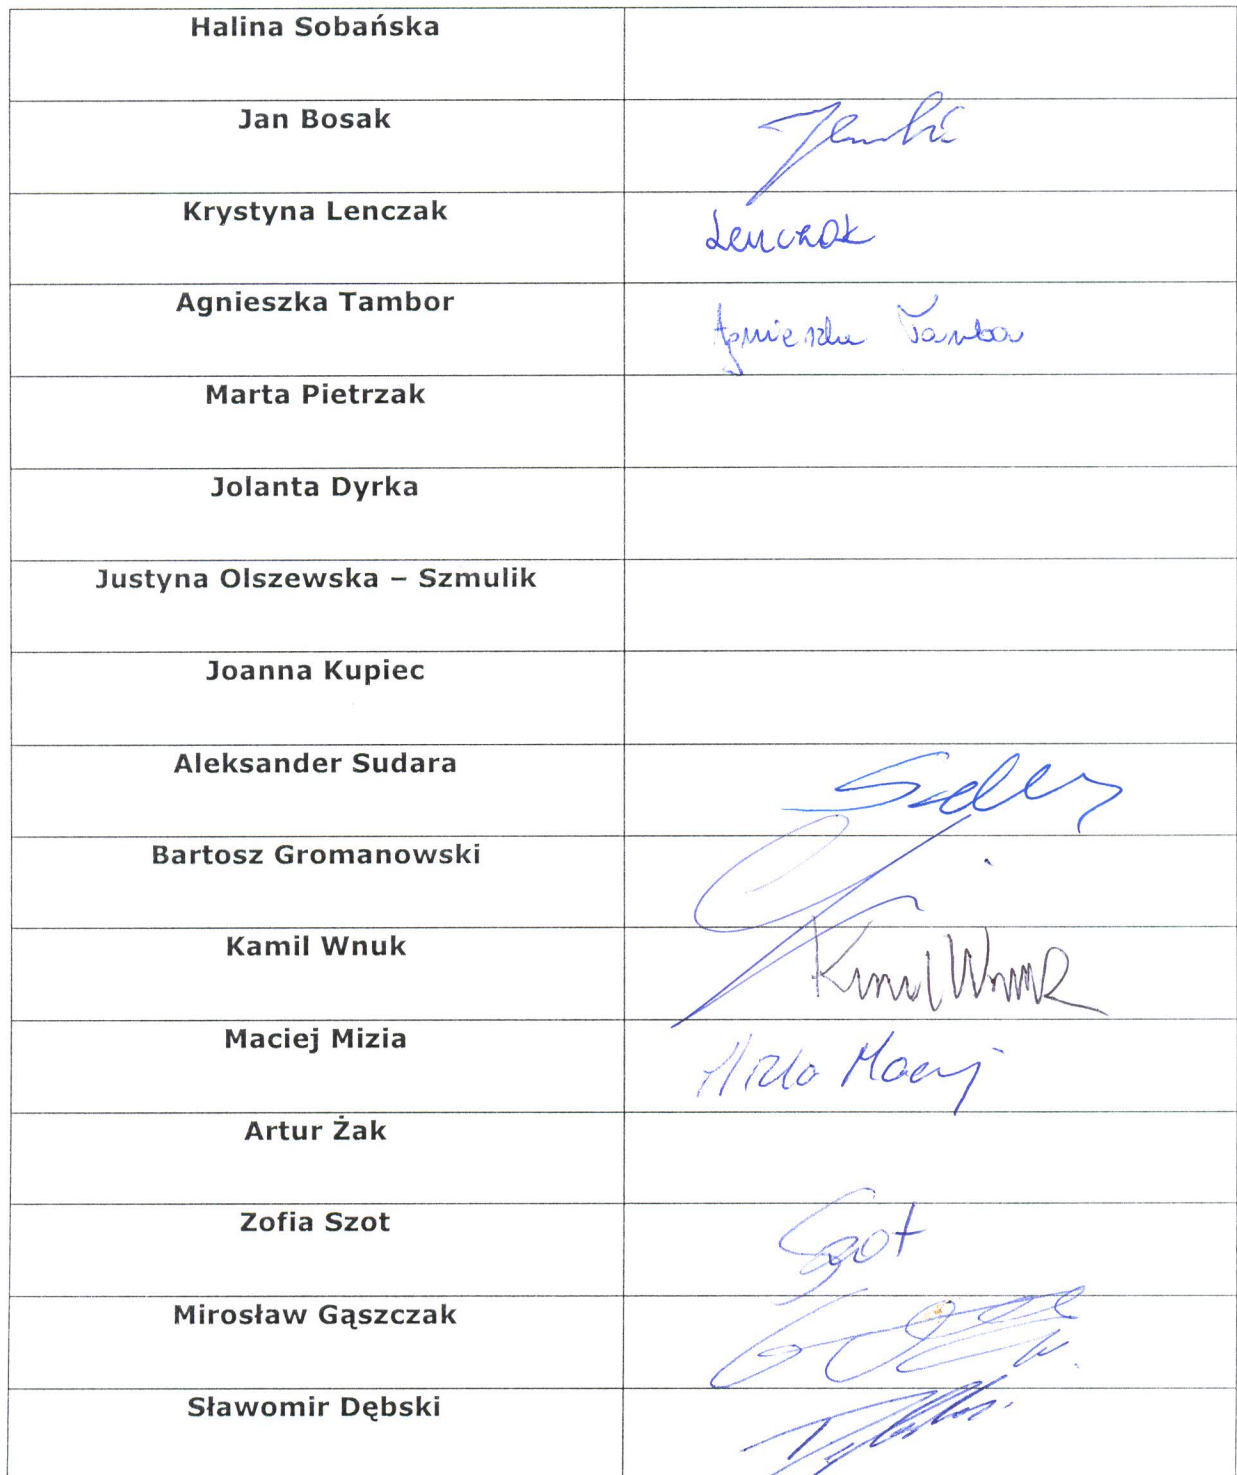 Halina Sobańska
Jan Bosak
Krystyna Lenczak
Lenczak
Agnieszka Tambor
Agnieszka Tambor
Marta Pietrzak
Jolanta Dyrka
Justyna Olszewska – Szmulik
Joanna Kupiec
Aleksander Sudara
Bartosz Gromanowski
Kamil Wnuk
Kamil Wnuk
Maciej Mizia
Mizia Maciej
Artur Żak
Zofia Szot
Szot
Mirosław Gąszczak
Sławomir Dębski